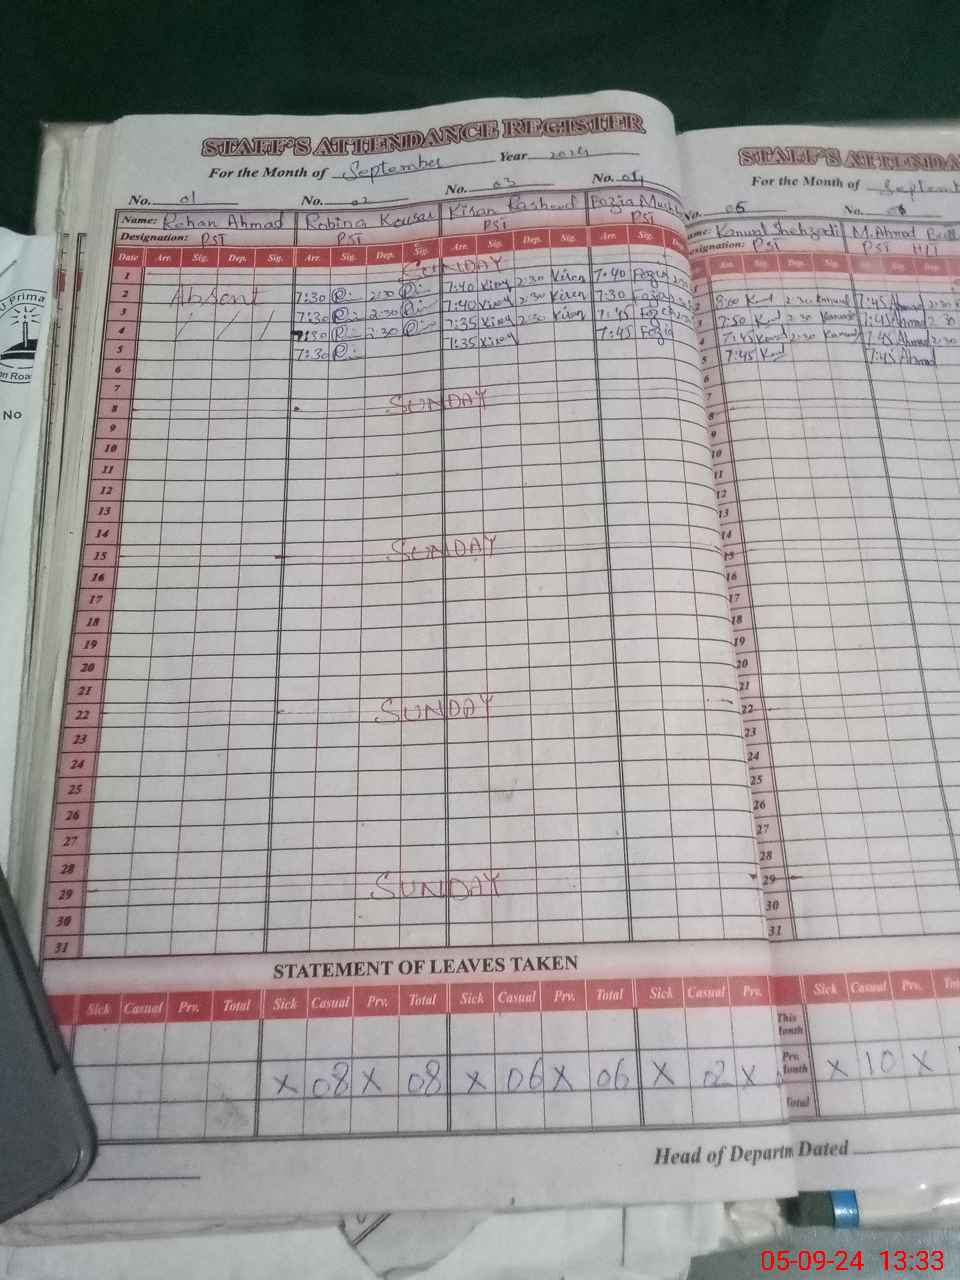 STAFF'S ATTENDANCE REGISTER
For the Month of September Year 2024
No. 01 No. 02 No. 03 No. 04
Name: Rehan Ahmad Robina Kousar Kiran Rasheed Fozia
Designation: PST PST PST PST
Date Arr. Sig. Dep. Sig. Arr. Sig. Dep. Sig. Arr. Sig. Dep. Sig. Arr. Sig.
1 SUNDAY
2 Absent 7:30 2:30 7:40 Kiran 2:30 Kiran 7:40 Fozia
3 7:30 2:30 7:40 Kiran 2:30 Kiran 7:30 Fozia
4 7:30 2:30 7:35 Kiran 2:30 Kiran 7:45 Fozia
5 7:30 7:35 Kiran 7:45 Fozia
6
7
8 SUNDAY
9
10
11
12
13
14
15 SUNDAY
16
17
18
19
20
21
22 SUNDAY
23
24
25
26
27
28
29 SUNDAY
30
31
STATEMENT OF LEAVES TAKEN
Sick Casual Prv. Total Sick Casual Prv. Total Sick Casual Prv. Total Sick Casual Prv.
X 08 X 08 X 06 X 06 X 02 X
Head of Departm
STAFF'S ATTENDA
For the Month of Septemb
No. 05 No. 06
Kanwal Shehzadi M. Ahmad
esignation: PST PST
2 8:00 2:30 Kanwal 7:45 Ahmad 2:30
3 7:50 2:30 Kanwal 7:45 Ahmad 2:30
4 7:45 2:30 Kanwal 7:45 Ahmad 2:30
5 7:45 7:45 Ahmad
6
7
8
9
10
11
12
13
14
15
16
17
18
19
20
21
22
23
24
25
26
27
28
29
30
31
Sick Casual Prv.
This
Month
Prv.
Month X 10 X
Total
Dated
Prima
on Roa
No
05-09-24 13:33